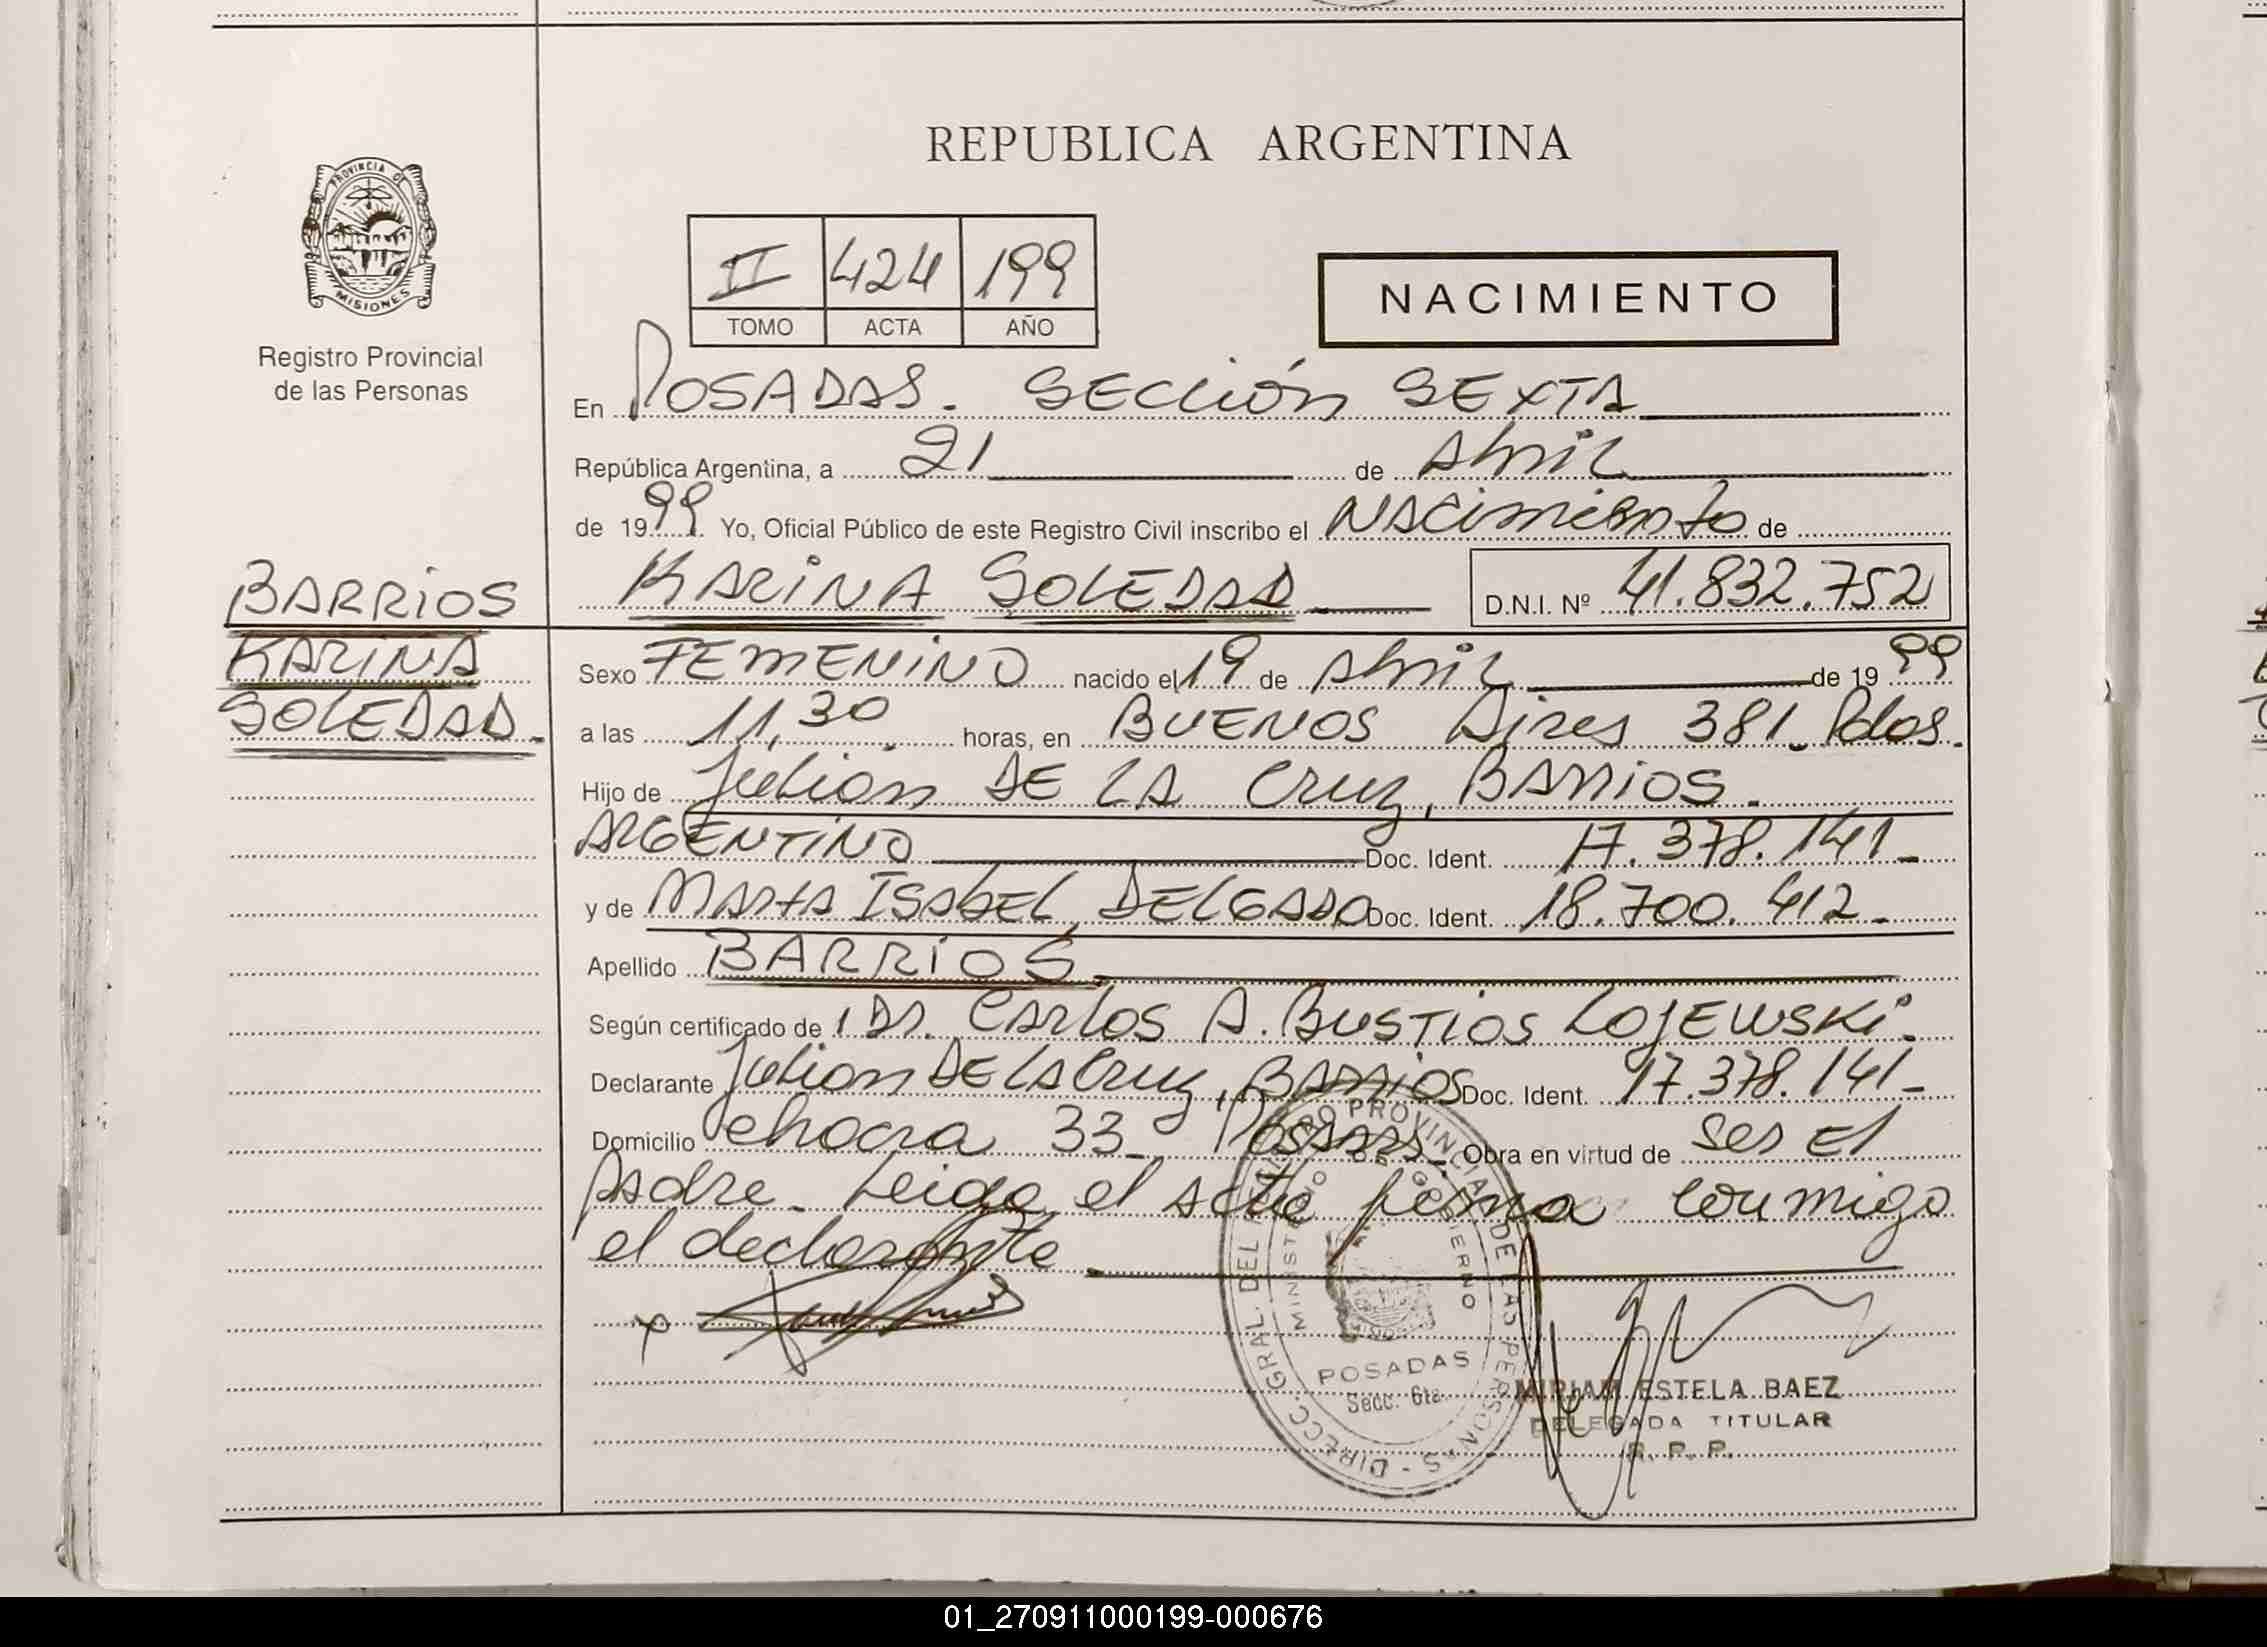 REPUBLICA ARGENTINA
PROVINCIA D
MISIONES
Registro Provincial
de las Personas
II 424 199
TOMO ACTA AÑO
NACIMIENTO
En POSADAS. SECCIÓN SEXTA
República Argentina, a 21 de Abril
de 1999 Yo, Oficial Público de este Registro Civil inscribo el NACIMIENTO de
BARRIOS
KARINA
SOLEDAD.
KARINA SOLEDAD D.N.I. Nº 41.832.752
Sexo FEMENINO nacido el 19 de Abril de 1999
a las 11,30 horas, en BUENOS Aires 381. Pdas.
Hijo de Julián DE LA Cruz, BARRIOS.
ARGENTINO Doc. Ident. 17.378.141-
y de MARTA ISABEL DELGADO Doc. Ident. 18.700.412-
Apellido BARRIOS
Según certificado de Dr. CARLOS A. BUSTIOS LOJEWSKI.
Declarante Julián DE LA Cruz, BARRIOS Doc. Ident. 17.378.141-
Domicilio chacra 33- Posadas. Obra en virtud de ser El
padre. Leida el acta firma conmigo
el declarante
x
DIRECC. GRAL. DEL REGISTRO PROVINCIAL DE LAS PERSONAS -
MINISTERIO DE GOBIERNO
POSADAS
Secc. 6ta.
MIRIAM ESTELA BAEZ
DELEGADA TITULAR
R. P. P.
01_270911000199-000676